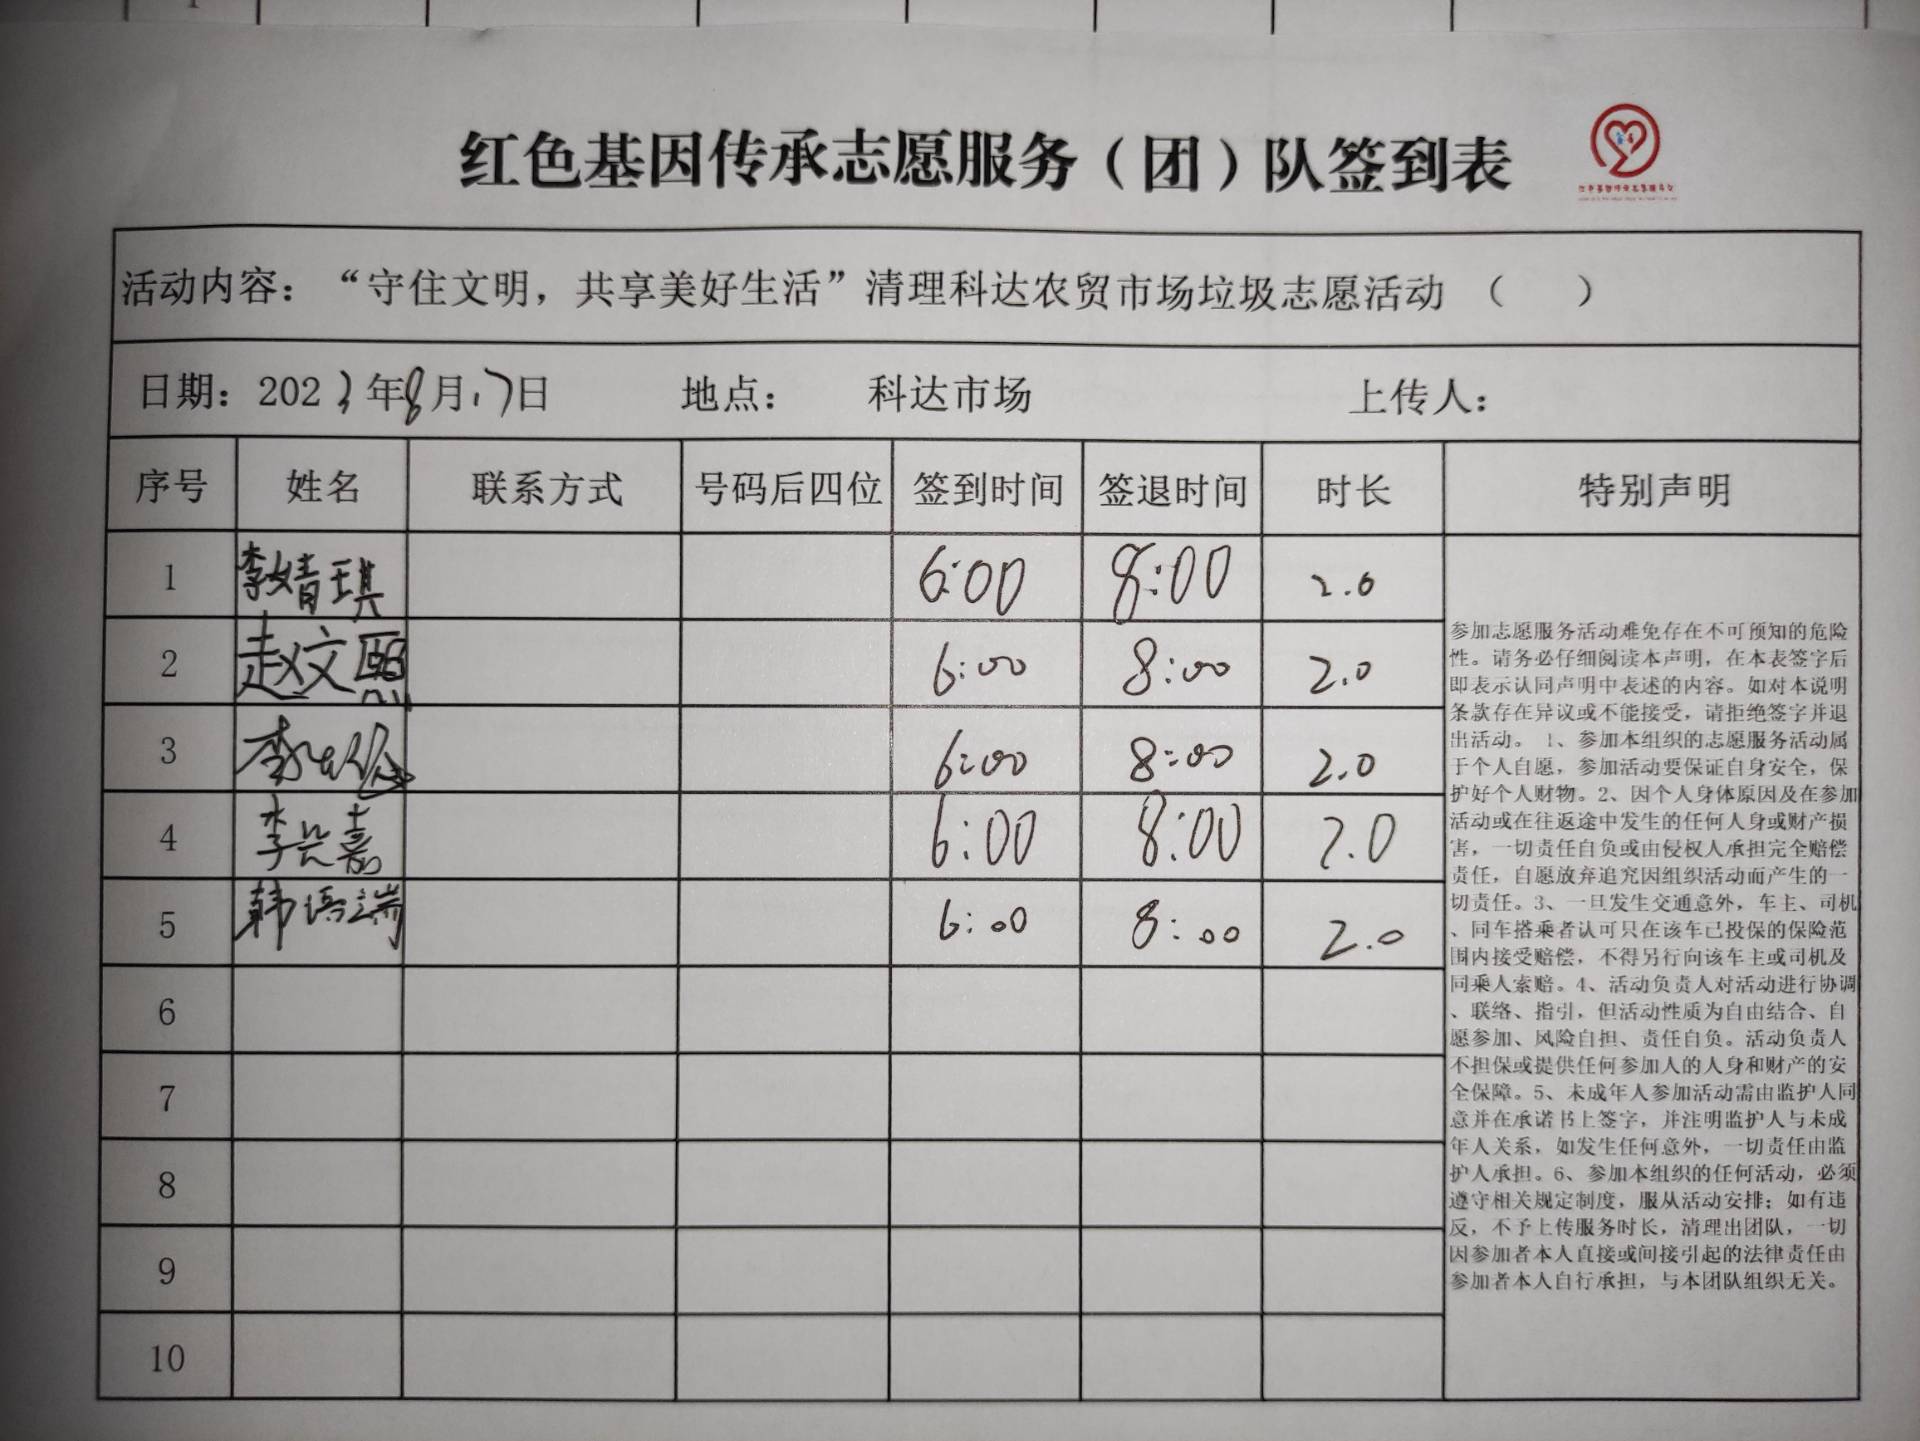 红色基因传承志愿服务（团）队签到表
活动内容：“守住文明，共享美好生活”清理科达农贸市场垃圾志愿活动（ ）
日期：2023年8月17日 地点： 科达市场 上传人：
序号 姓名 联系方式 号码后四位 签到时间 签退时间 时长 特别声明
1 李婧琪 6:00 8:00 2.0
2 赵文熙 6:00 8:00 2.0
3 李 6:00 8:00 2.0
4 李长嘉 6:00 8:00 2.0
5 韩语端 6:00 8:00 2.0
6
7
8
9
10
参加志愿服务活动难免存在不可预知的危险
性。请务必仔细阅读本声明，在本表签字后
即表示认同声明中表述的内容。如对本说明
条款存在异议或不能接受，请拒绝签字并退
出活动。 1、参加本组织的志愿服务活动属
于个人自愿，参加活动要保证自身安全，保
护好个人财物。2、因个人身体原因及在参加
活动或在往返途中发生的任何人身或财产损
害，一切责任自负或由侵权人承担完全赔偿
责任，自愿放弃追究因组织活动而产生的一
切责任。3、一旦发生交通意外，车主、司机
、同车搭乘者认可只在该车已投保的保险范
围内接受赔偿，不得另行向该车主或司机及
同乘人索赔。4、活动负责人对活动进行协调
、联络、指引，但活动性质为自由结合、自
愿参加、风险自担、责任自负。活动负责人
不担保或提供任何参加人的人身和财产的安
全保障。5、未成年人参加活动需由监护人同
意并在承诺书上签字，并注明监护人与未成
年人关系，如发生任何意外，一切责任由监
护人承担。6、参加本组织的任何活动，必须
遵守相关规定制度，服从活动安排；如有违
反，不予上传服务时长，清理出团队，一切
因参加者本人直接或间接引起的法律责任由
参加者本人自行承担，与本团队组织无关。